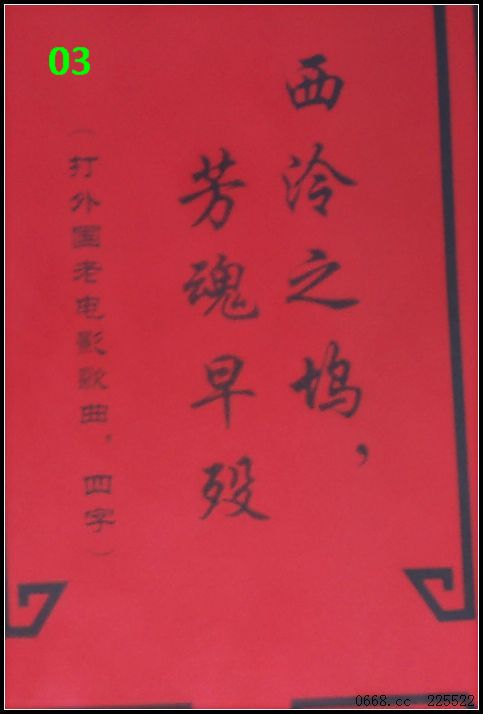 03
西泠之坞，
芳魂早殁
（打外国老电影歌曲，四字）
0668.cc 225522